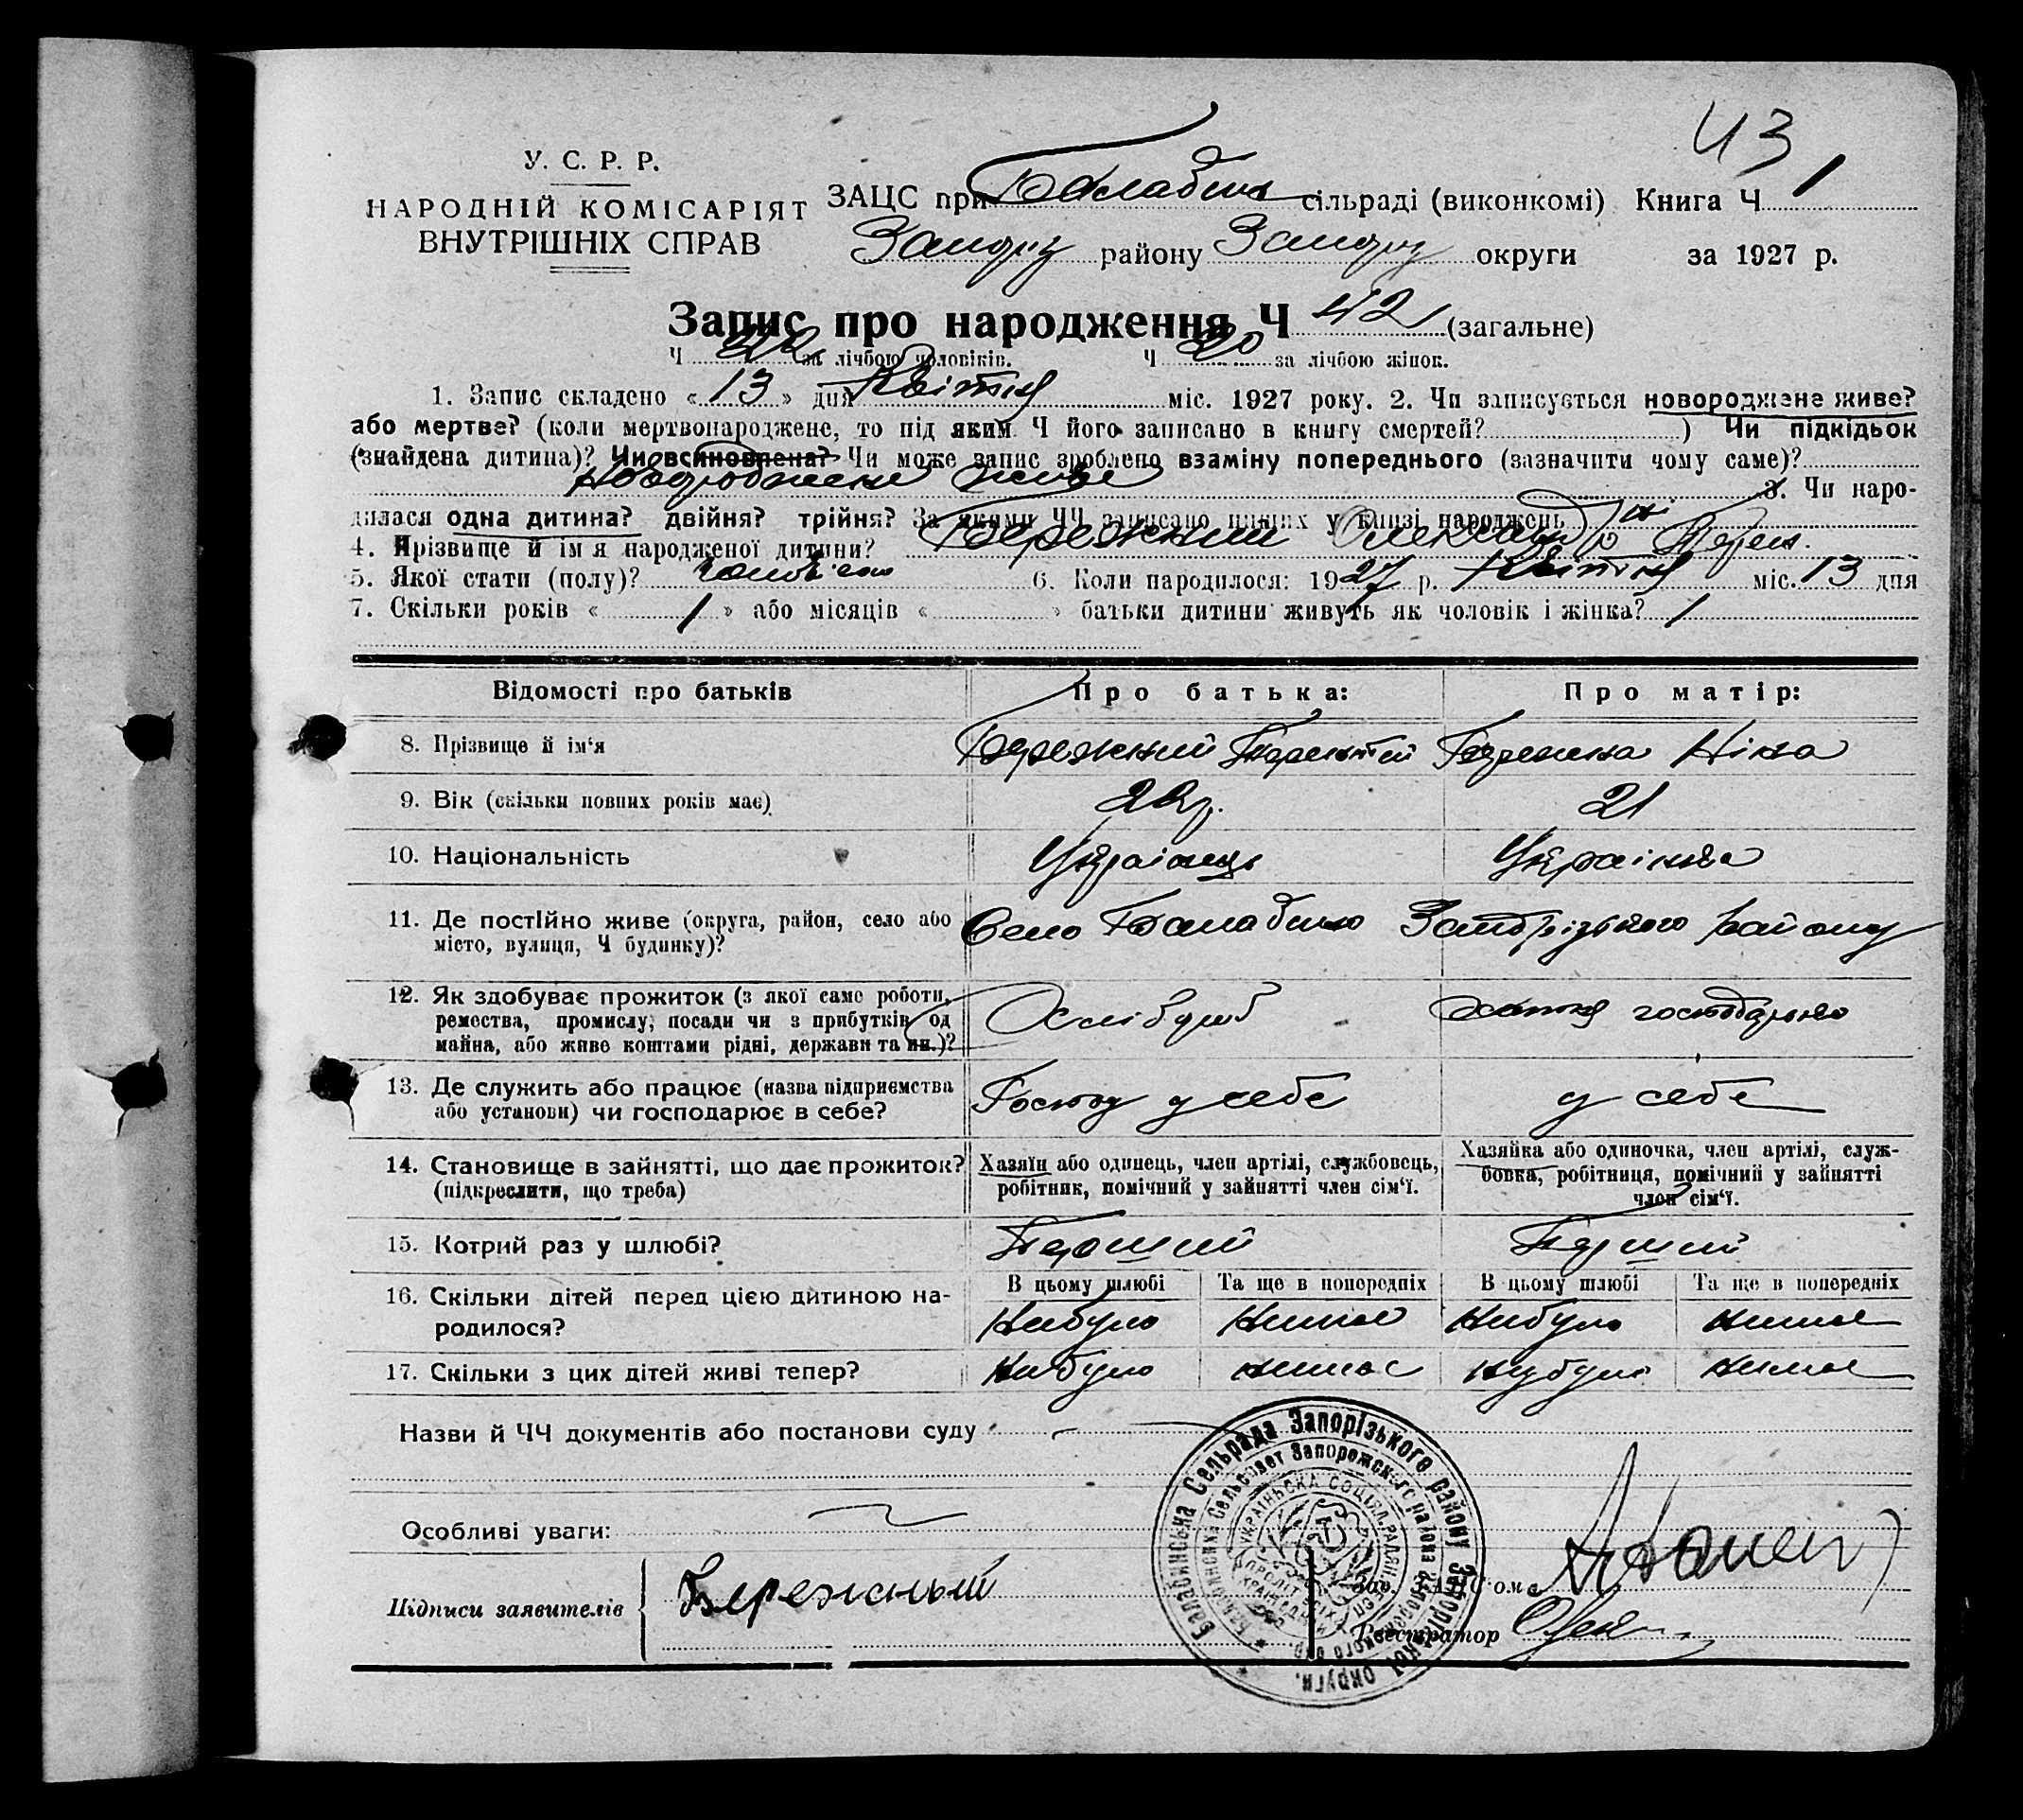 43
У. С. Р. Р.
НАРОДНІЙ КОМІСАРІЯТ
ВНУТРІШНІХ СПРАВ
ЗАЦС при Балабин сільраді (виконкомі) Книга Ч 1
району округи за 1927 р.
Запис про народження Ч 42 (загальне)
Ч 22 за лічбою чоловіків. Ч 20 за лічбою жінок.
1. Запис складено « 13 » дня Квітня міс. 1927 року. 2. Чи записується новороджене живе?
або мертве? (коли мертвонароджене, то під яким Ч його записано в книгу смертей? ) Чи підкідьок
(знайдена дитина)? Чи всиновлена? Чи може запис зроблено взаміну попереднього (зазначити чому саме)?
Новороджене живе 3. Чи наро-
дилася одна дитина? двійня? трійня? За якими ЧЧ записано інших у книзі народжень
4. Прізвище й ім'я народженої дитини? Бережний Олександр
5. Якої стати (полу)? 6. Коли народилося: 1927 р. Квітня міс. 13 дня
7. Скільки років « 1 » або місяців « » батьки дитини живуть як чоловік і жінка? 1
Відомості про батьків Про батька: Про матір:
8. Прізвище й ім'я Бережний Терентій Бережна Ніна
9. Вік (скільки повних років має) 22 р. 21
10. Національність Українець Українка
11. Де постійно живе (округа, район, село або Село Балабино Запорізького району
місто, вулиця, Ч будинку)?
12. Як здобуває прожиток (з якої саме роботи, Хлібороб хатня господарка
ремества, промислу, посади чи з прибутків од
майна, або живе коштами рідні, держави та ин.)?
13. Де служить або працює (назва підприємства Господ у себе у себе
або установи) чи господарює в себе?
14. Становище в зайнятті, що дає прожиток? Хазяїн або одинець, член артілі, службовець, Хазяйка або одиночка, член артілі, служ-
(підкреслити, що треба) робітник, помічний у зайнятті член сім'ї. бовка, робітниця, помічний у зайнятті
член сім'ї.
15. Котрий раз у шлюбі? Перший Перший
В цьому шлюбі Та ще в попередніх В цьому шлюбі Та ще в попередніх
16. Скільки дітей перед цією дитиною на- Небуло нимає Небуло нимає
родилося?
17. Скільки з цих дітей живі тепер? Небуло нимає Небуло нимає
Назви й ЧЧ документів або постанови суду
Особливі уваги:
Підписи заявителів Бережный
Зав. ЗАЦС'ом
Реєстратор
Балабинська Сельрада Запорізького району Запорізької округи.
Балабинский Сельсовет Запорожского района Запорожского окр.